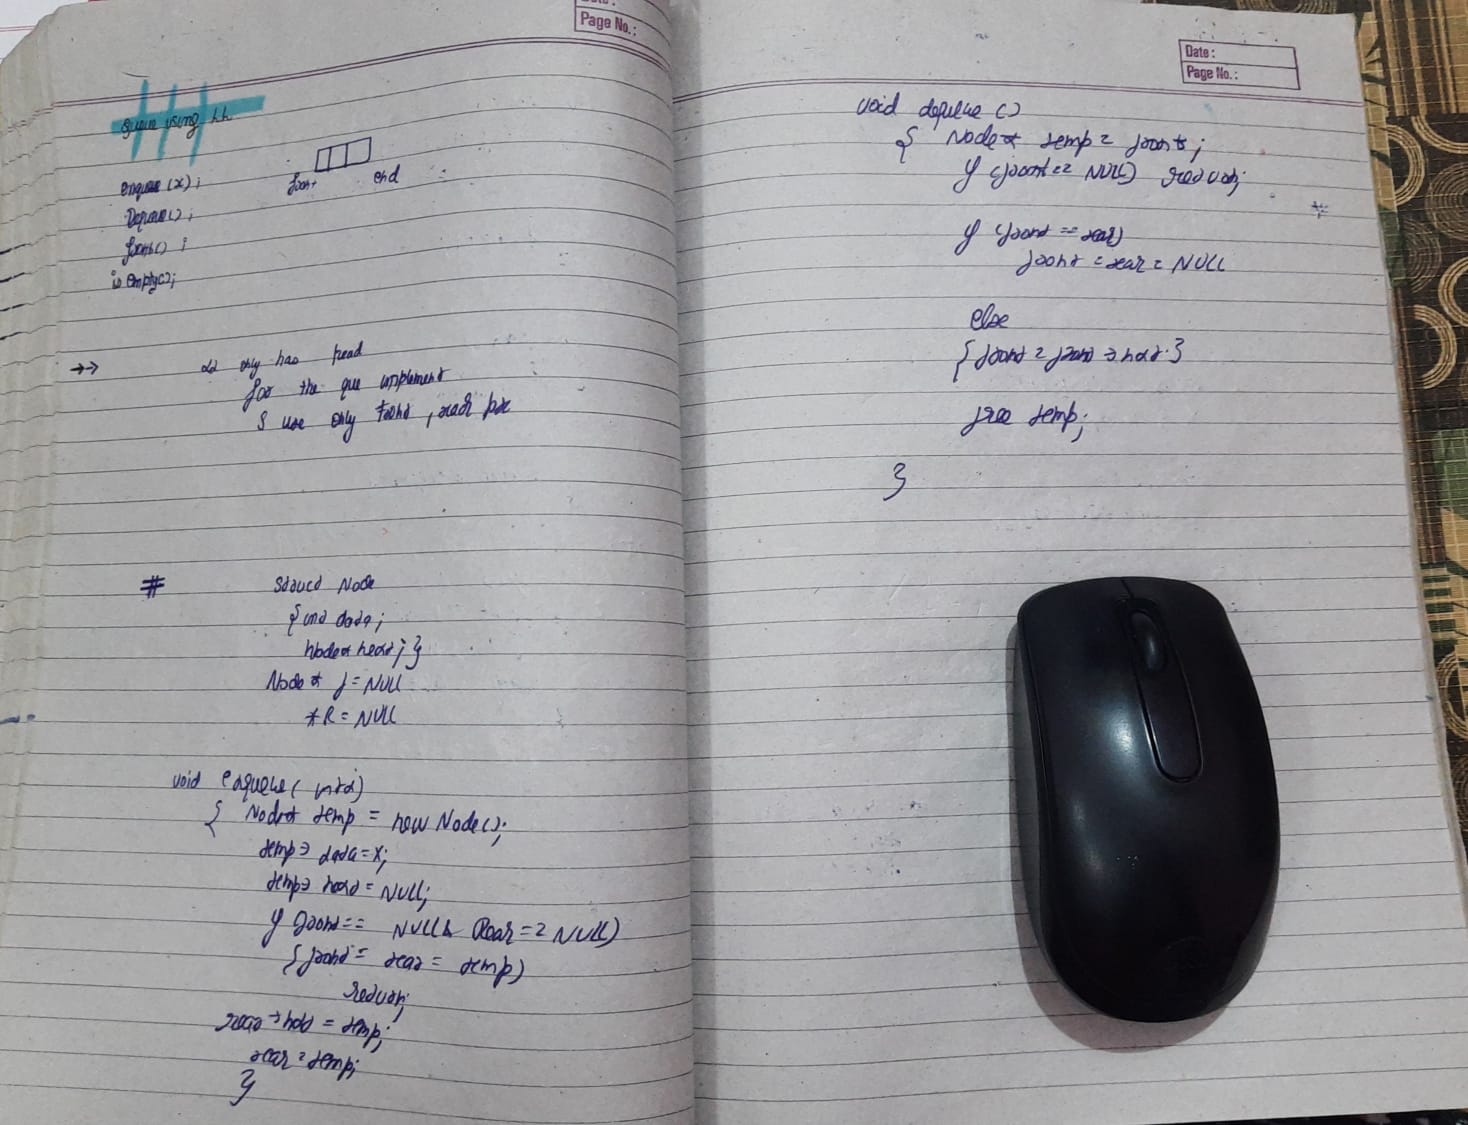 Date:
Page No.:
queue using LL
enqueue (x);
Dequeue();
front() ;
is empty();
front end
→→ LL only has head
for the que implement
I use only front, rear ptr
# Struct Node
{ int data;
Node* next; }
Node* f = NULL
*R = NULL
void enqueue( int x)
{ Node* temp = new Node();
temp→ data = x;
temp→ next = NULL;
if front == NULL & Rear == NULL)
{ front = rear = temp)
return;
rear → next = temp;
rear = temp;
}
Date :
Page No.:
void dequeue ()
{ Node* temp = front;
if (front == NULL) return;
if (front == rear)
front = rear = NULL
else
{ front = front → next }
free temp;
}